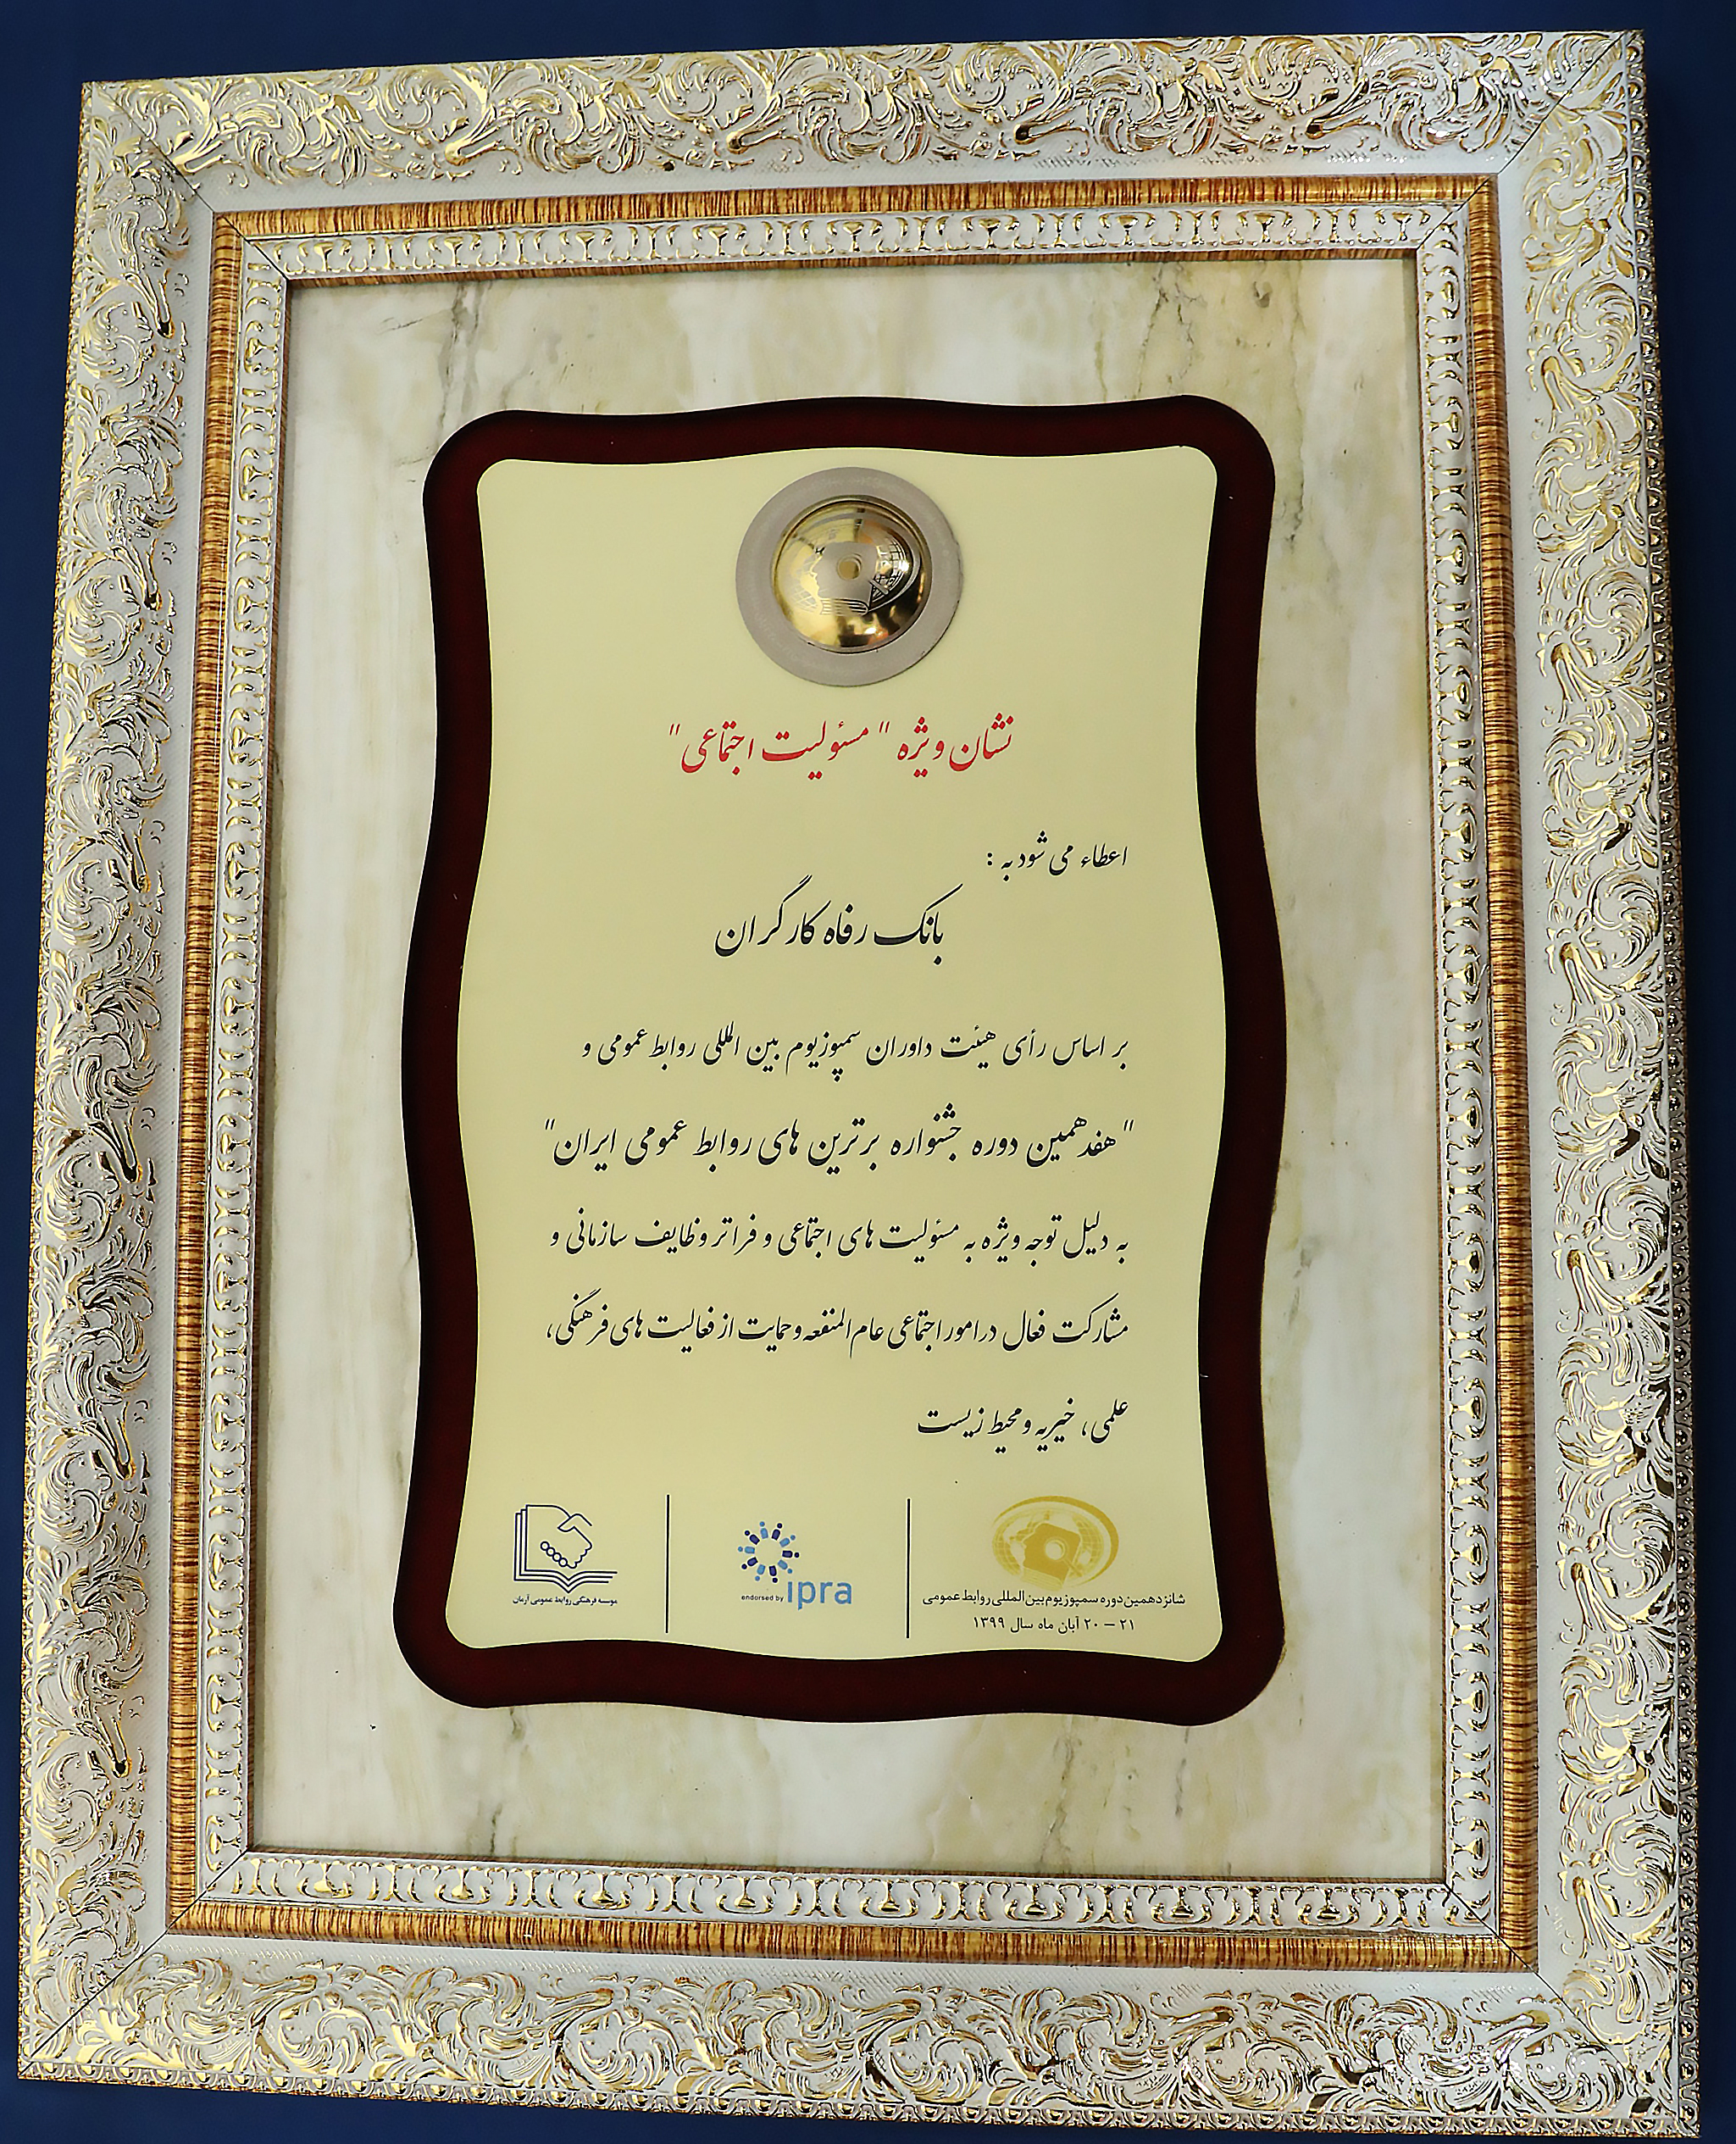 نشان ویژه " مسئولیت اجتماعی "
اعطاء می شود به :
بانک رفاه کارگران
بر اساس رأی هیئت داوران سمپوزیوم بین المللی روابط عمومی و
" هفدهمین دوره جشنواره برترین های روابط عمومی ایران "
به دلیل توجه ویژه به مسئولیت های اجتماعی و فراتر وظایف سازمانی و
مشارکت فعال در امور اجتماعی عام المنفعه و حمایت از فعالیت های فرهنگی،
علمی، خیریه و محیط زیست
شانزدهمین دوره سمپوزیوم بین المللی روابط عمومی
۲۱ – ۲۰ آبان ماه سال ۱۳۹۹
endorsed by ipra
موسسه فرهنگی روابط عمومی آرمان